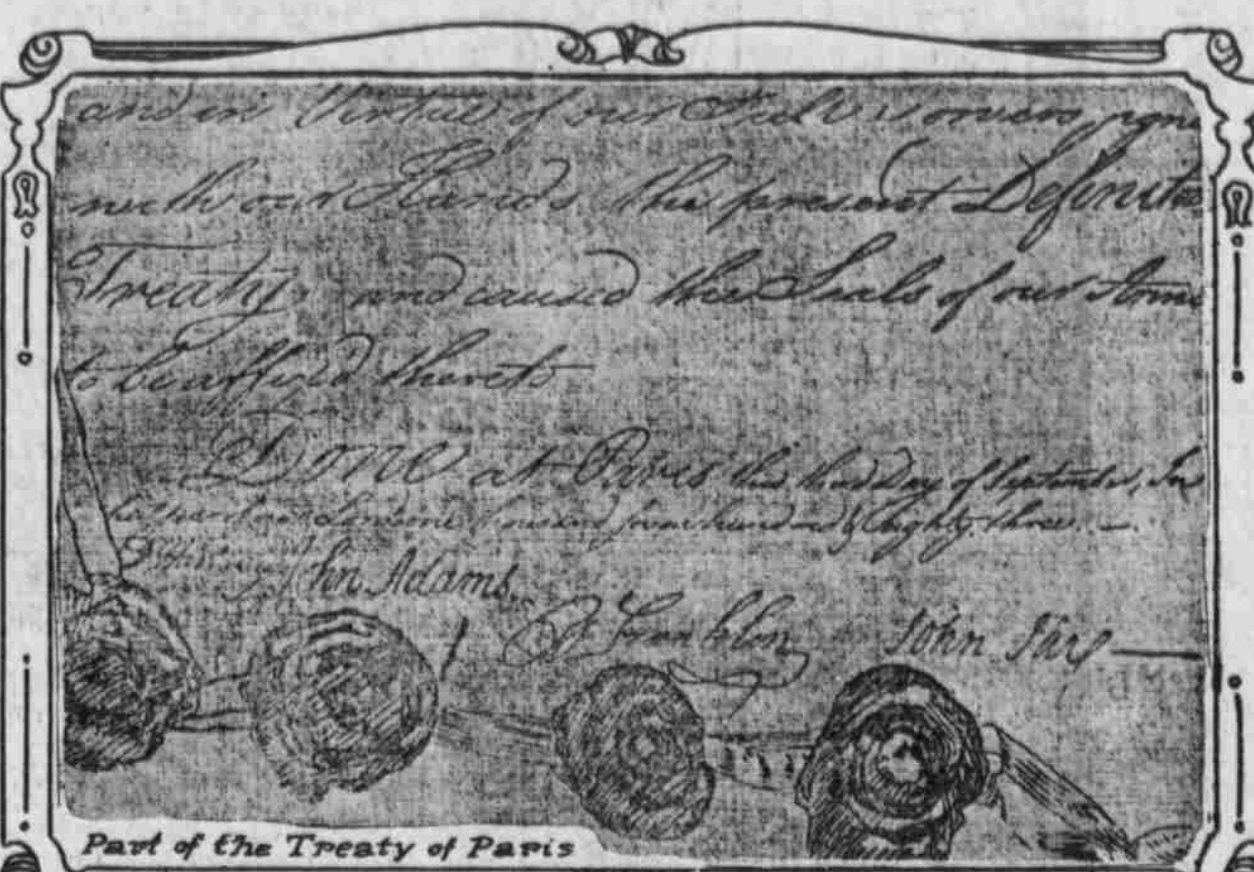 and in Virtue of our Full Powers sign
with our Hands the present Definitive
Treaty, and caused the Seals of our Arms
to be affix'd thereto
Done at Paris this third Day of September, In
the Year of our Lord one thousand seven hundred & Eighty three.—
John Adams.
B Franklin
John Jay
Part of the Treaty of Paris